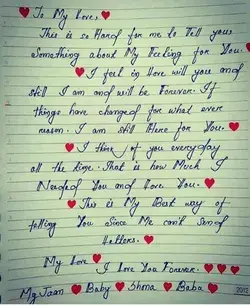 To My Love,
This is so Hard for me to Tell your
Something about My Feeling for You.
I feel in Love will you and
still I am and will be Forever. If
things have changed for what ever
reason. I am still Here for You.
I think of you everyday
all the time. That is how Much I
Needed You and Love You.
This is My Best way of
telling You Since Me can't send
Letters.
My Love
I Love You Forever.
My Jaan Baby Shona Baba